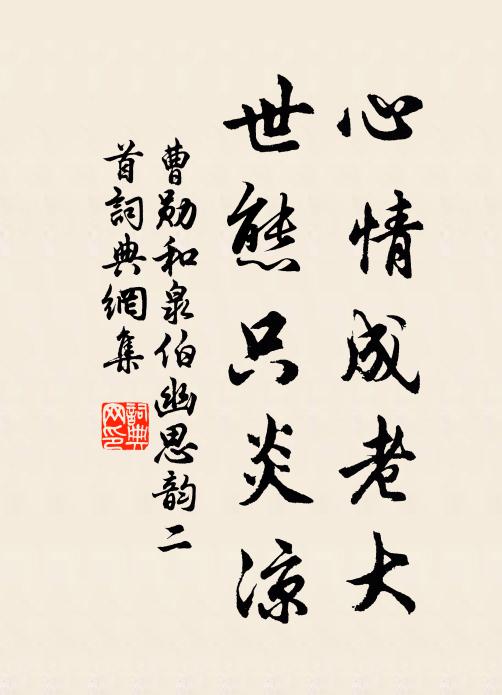 心情成老大
世態只炎涼
曹勋和泉伯幽思韵二
首詞典網集
詞典
网印